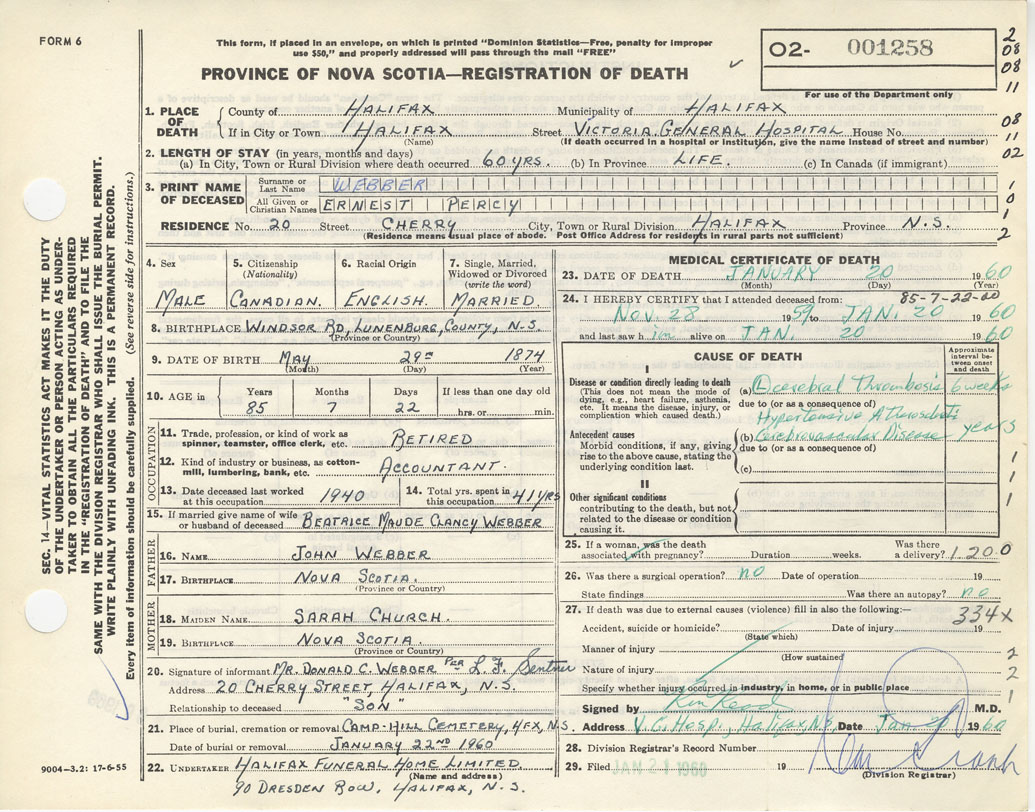 FORM 6
This form, if placed in an envelope, on which is printed "Dominion Statistics—Free, penalty for improper
use $50," and properly addressed will pass through the mail "FREE"
PROVINCE OF NOVA SCOTIA—REGISTRATION OF DEATH
O2- 001258
For use of the Department only
2
08
08
11
08
11
02
1
0
1
2
SEC. 14—VITAL STATISTICS ACT MAKES IT THE DUTY
OF THE UNDERTAKER OR PERSON ACTING AS UNDER-
TAKER TO OBTAIN ALL THE PARTICULARS REQUIRED
IN THE "REGISTRATION OF DEATH" AND FILE THE
SAME WITH THE DIVISION REGISTRAR WHO SHALL ISSUE THE BURIAL PERMIT.
WRITE PLAINLY WITH UNFADING INK. THIS IS A PERMANENT RECORD.
Every item of information should be carefully supplied. (See reverse side for instructions.)
1. PLACE OF DEATH
County of HALIFAX Municipality of HALIFAX
If in City or Town HALIFAX Street VICTORIA GENERAL HOSPITAL House No.
(Name) (If death occurred in a hospital or institution, give the name instead of street and number)
2. LENGTH OF STAY (in years, months and days)
(a) In City, Town or Rural Division where death occurred 60 YRS. (b) In Province LIFE. (c) In Canada (if immigrant)
3. PRINT NAME OF DECEASED
Surname or Last Name WEBBER
All Given or Christian Names ERNEST PERCY
RESIDENCE No. 20 Street CHERRY City, Town or Rural Division HALIFAX Province N.S.
(Residence means usual place of abode. Post Office Address for residents in rural parts not sufficient)
4. Sex
MALE
5. Citizenship
(Nationality)
CANADIAN.
6. Racial Origin
ENGLISH.
7. Single, Married,
Widowed or Divorced
(write the word)
MARRIED.
8. BIRTHPLACE WINDSOR RD, LUNENBURG, COUNTY, N.S.
(Province or Country)
9. DATE OF BIRTH MAY 29 1874
(Month) (Day) (Year)
10. AGE in
Years Months Days If less than one day old
85 7 22 hrs. or min.
OCCUPATION
11. Trade, profession, or kind of work as
spinner, teamster, office clerk, etc. RETIRED
12. Kind of industry or business, as cotton-
mill, lumbering, bank, etc. ACCOUNTANT.
13. Date deceased last worked
at this occupation 1940
14. Total yrs. spent in
this occupation 41 YRS
15. If married give name of wife
or husband of deceased BEATRICE MAUDE CLANCY WEBBER
FATHER
16. NAME JOHN WEBBER
17. BIRTHPLACE NOVA SCOTIA.
(Province or Country)
MOTHER
18. MAIDEN NAME SARAH CHURCH.
19. BIRTHPLACE NOVA SCOTIA.
(Province or Country)
20. Signature of informant MR. DONALD C. WEBBER PER L. F. Sentner
Address 20 CHERRY STREET, HALIFAX, N.S.
Relationship to deceased "SON"
21. Place of burial, cremation or removal CAMP-HILL CEMETERY, HFX, N.S.
Date of burial or removal JANUARY 22ND 1960
22. UNDERTAKER HALIFAX FUNERAL HOME LIMITED.
(Name and address)
90 DRESDEN ROW, HALIFAX, N.S.
9004—3.2: 17-6-55
MEDICAL CERTIFICATE OF DEATH
23. DATE OF DEATH JANUARY 20 1960
(Month) (Day) (Year)
24. I HEREBY CERTIFY that I attended deceased from: 85-7-22-00
NOV. 28 1959 to JAN. 20 1960
and last saw him alive on JAN. 20 1960
CAUSE OF DEATH
Approximate
interval be-
tween onset
and death
I
Disease or condition directly leading to death
(This does not mean the mode of
dying, e.g., heart failure, asthenia,
etc. It means the disease, injury, or
complication which caused death.)
(a) (L) cerebral thrombosis 6 weeks
due to (or as a consequence of)
Antecedent causes
Morbid conditions, if any, giving
rise to the above cause, stating the
underlying condition last.
(b) Cerebrovascular Disease years
due to (or as a consequence of)
(c)
II
Other significant conditions
contributing to the death, but not
related to the disease or condition
causing it.
1
1
1
25. If a woman, was the death
associated with pregnancy? Duration weeks. Was there
a delivery? 1200
26. Was there a surgical operation? no Date of operation 19
State findings Was there an autopsy? no
27. If death was due to external causes (violence) fill in also the following:— 334x
Accident, suicide or homicide? Date of injury 19
(State which)
Manner of injury
(How sustained)
Nature of injury
Specify whether injury occurred in industry, in home, or in public place
2
2
1
Signed by M.D.
Address V.G. Hosp., Halifax N.S. Date Jan 1960
28. Division Registrar's Record Number
29. Filed JAN 21 1960 19
(Division Registrar)